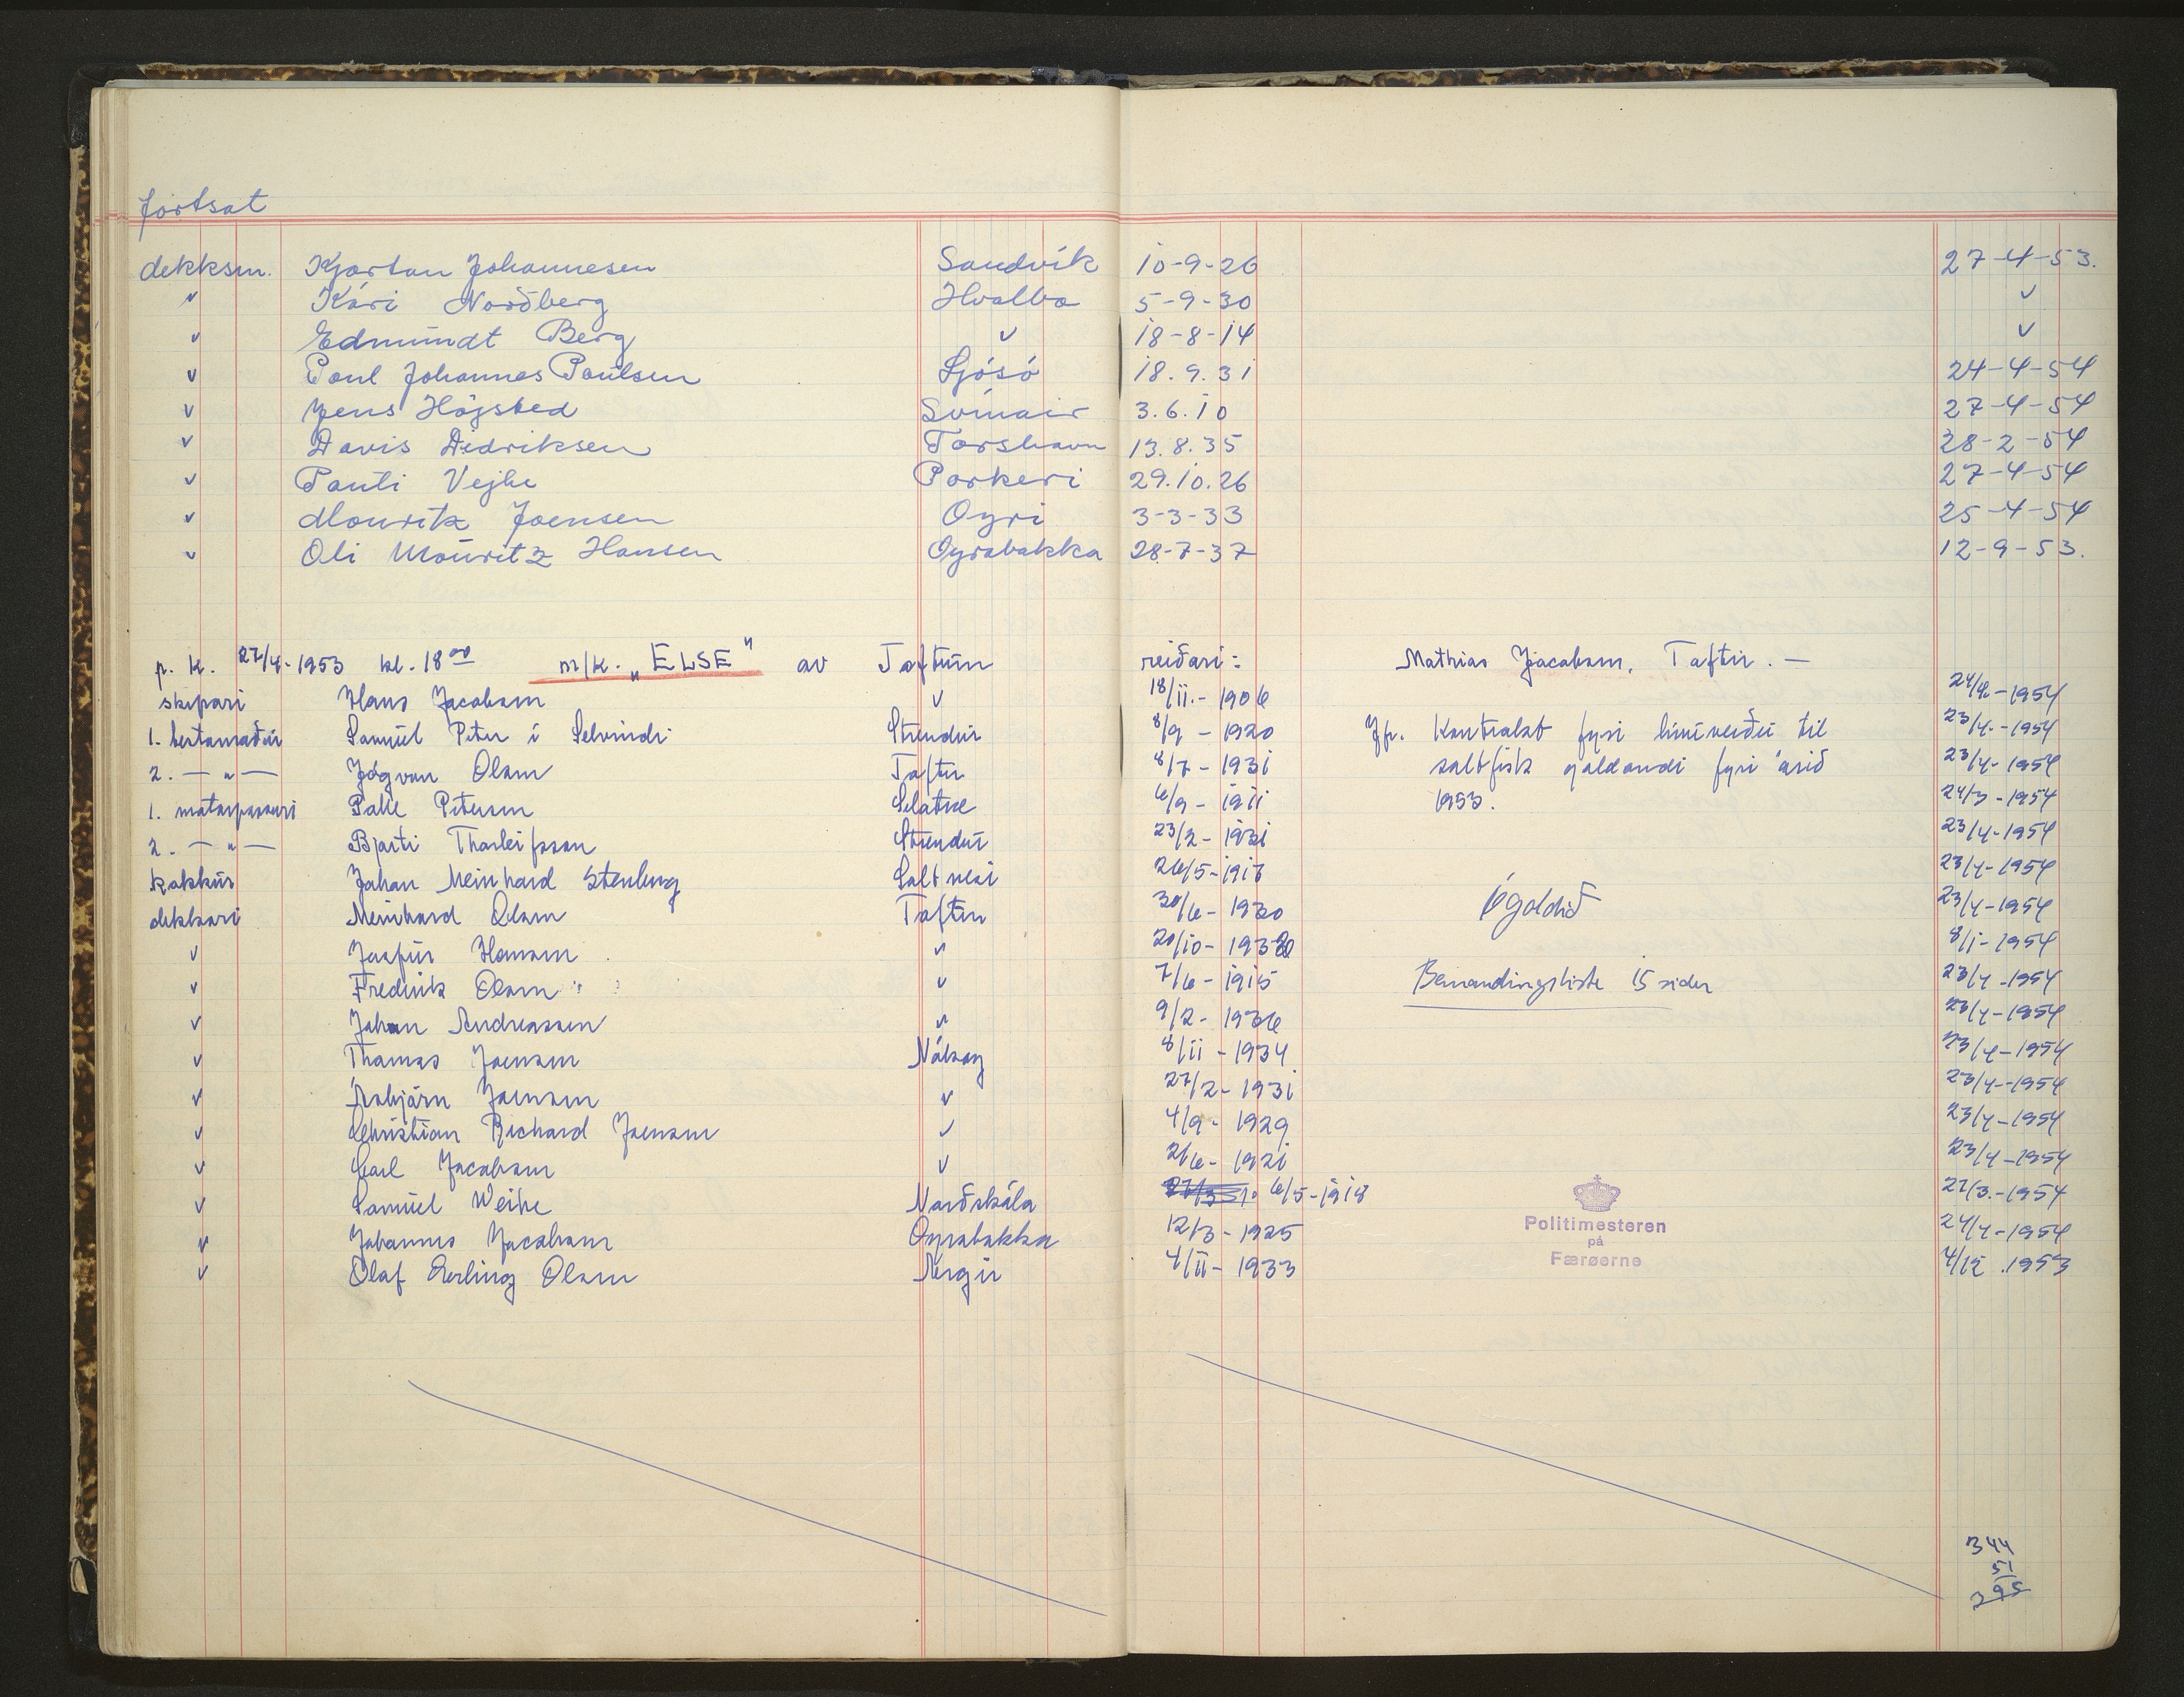 fortsat
dekksm. Kjartan Johannesen Sandvík 10-9-26 27-4-53.
" Kári Norðberg Hvalba 5-9-30 "
" Edmundt Berg " 18-8-14 "
" Poul Johannes Poulsen Ljósó 18.9.31 24-4-54
" Jens Højsted Svínair 3.6.10 27-4-54
" Davis Didriksen Torshavn 13.8.35 28-2-54
" Pauli Vejhe Porkeri 29.10.26 27-4-54
" Mouritz Joensen Oyri 3-3-33 25-4-54
" Oli Mouritz Hansen Oyrabakka 28-7-37 12-9-53.
p. k. 27/4-1953 kl. 18 00 m/k. „ELSE" av Toftum reiðari: Mathias Jacobsen, Toftir. —
skipari Hans Jacobsen " 18/11.- 1906 24/4-1954
1. bestamaður Samuel Peter í Selvindi Strendur 8/9 - 1920 Jfr. Kontrakt fyri línuveiðu til 23/4.-1954
2. — " — Jógvan Olsen Toftir 8/7 - 1931 saltfisk galdandi fyri árið 23/4-1954
1. motorpassari Palle Petersen Selatræ 6/9 - 1911 1953. 24/3-1954
2. — " — Bjarti Thorleifsson Strendur 23/2- 1931 23/4-1954
kokkur Johan Meinhard Stenberg Saltnesi 26/5-1917 23/4-1954
dekkari Meinhard Olsen Toftir 30/6- 1930 Ógoldið 23/4-1954
" Jaspur Hansen " 20/10- 8/1-1954
" Fredrik Olsen " 7/6- 1915 Bemandingsliste 15 sider 23/4-1954
" Johan Andreassen " 9/2- 1936 23/4-1954
" Thomas Joensen Nólsoy 8/11 - 1934 23/4-1954
" Asbjørn Joensen " 27/2- 1931 23/4-1954
" Christian Richard Joensen " 4/9- 1929 23/4-1954
" Carl Jacobsen " 2/6- 1921 23/4-1954
" Samuel Weihe Norðskála 6/5-1918 27/3.-1954
" Johannes Jacobsen Oyrabakka 12/3 - 1925 24/4-1954
" Olaf Erling Olsen Argir 4/11- 1933 4/12.1953
Politimesteren
på
Færøerne
344
51
395